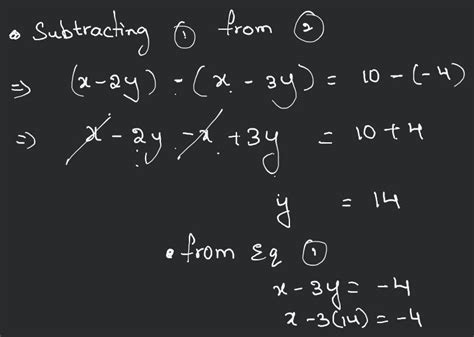 • Subtracting ① from ②
⇒ (x-2y) - (x - 3y) = 10 - (-4)
⇒ x - 2y - x + 3y = 10 + 4
y = 14
• from Eq ①
x - 3y = -4
x - 3(14) = -4